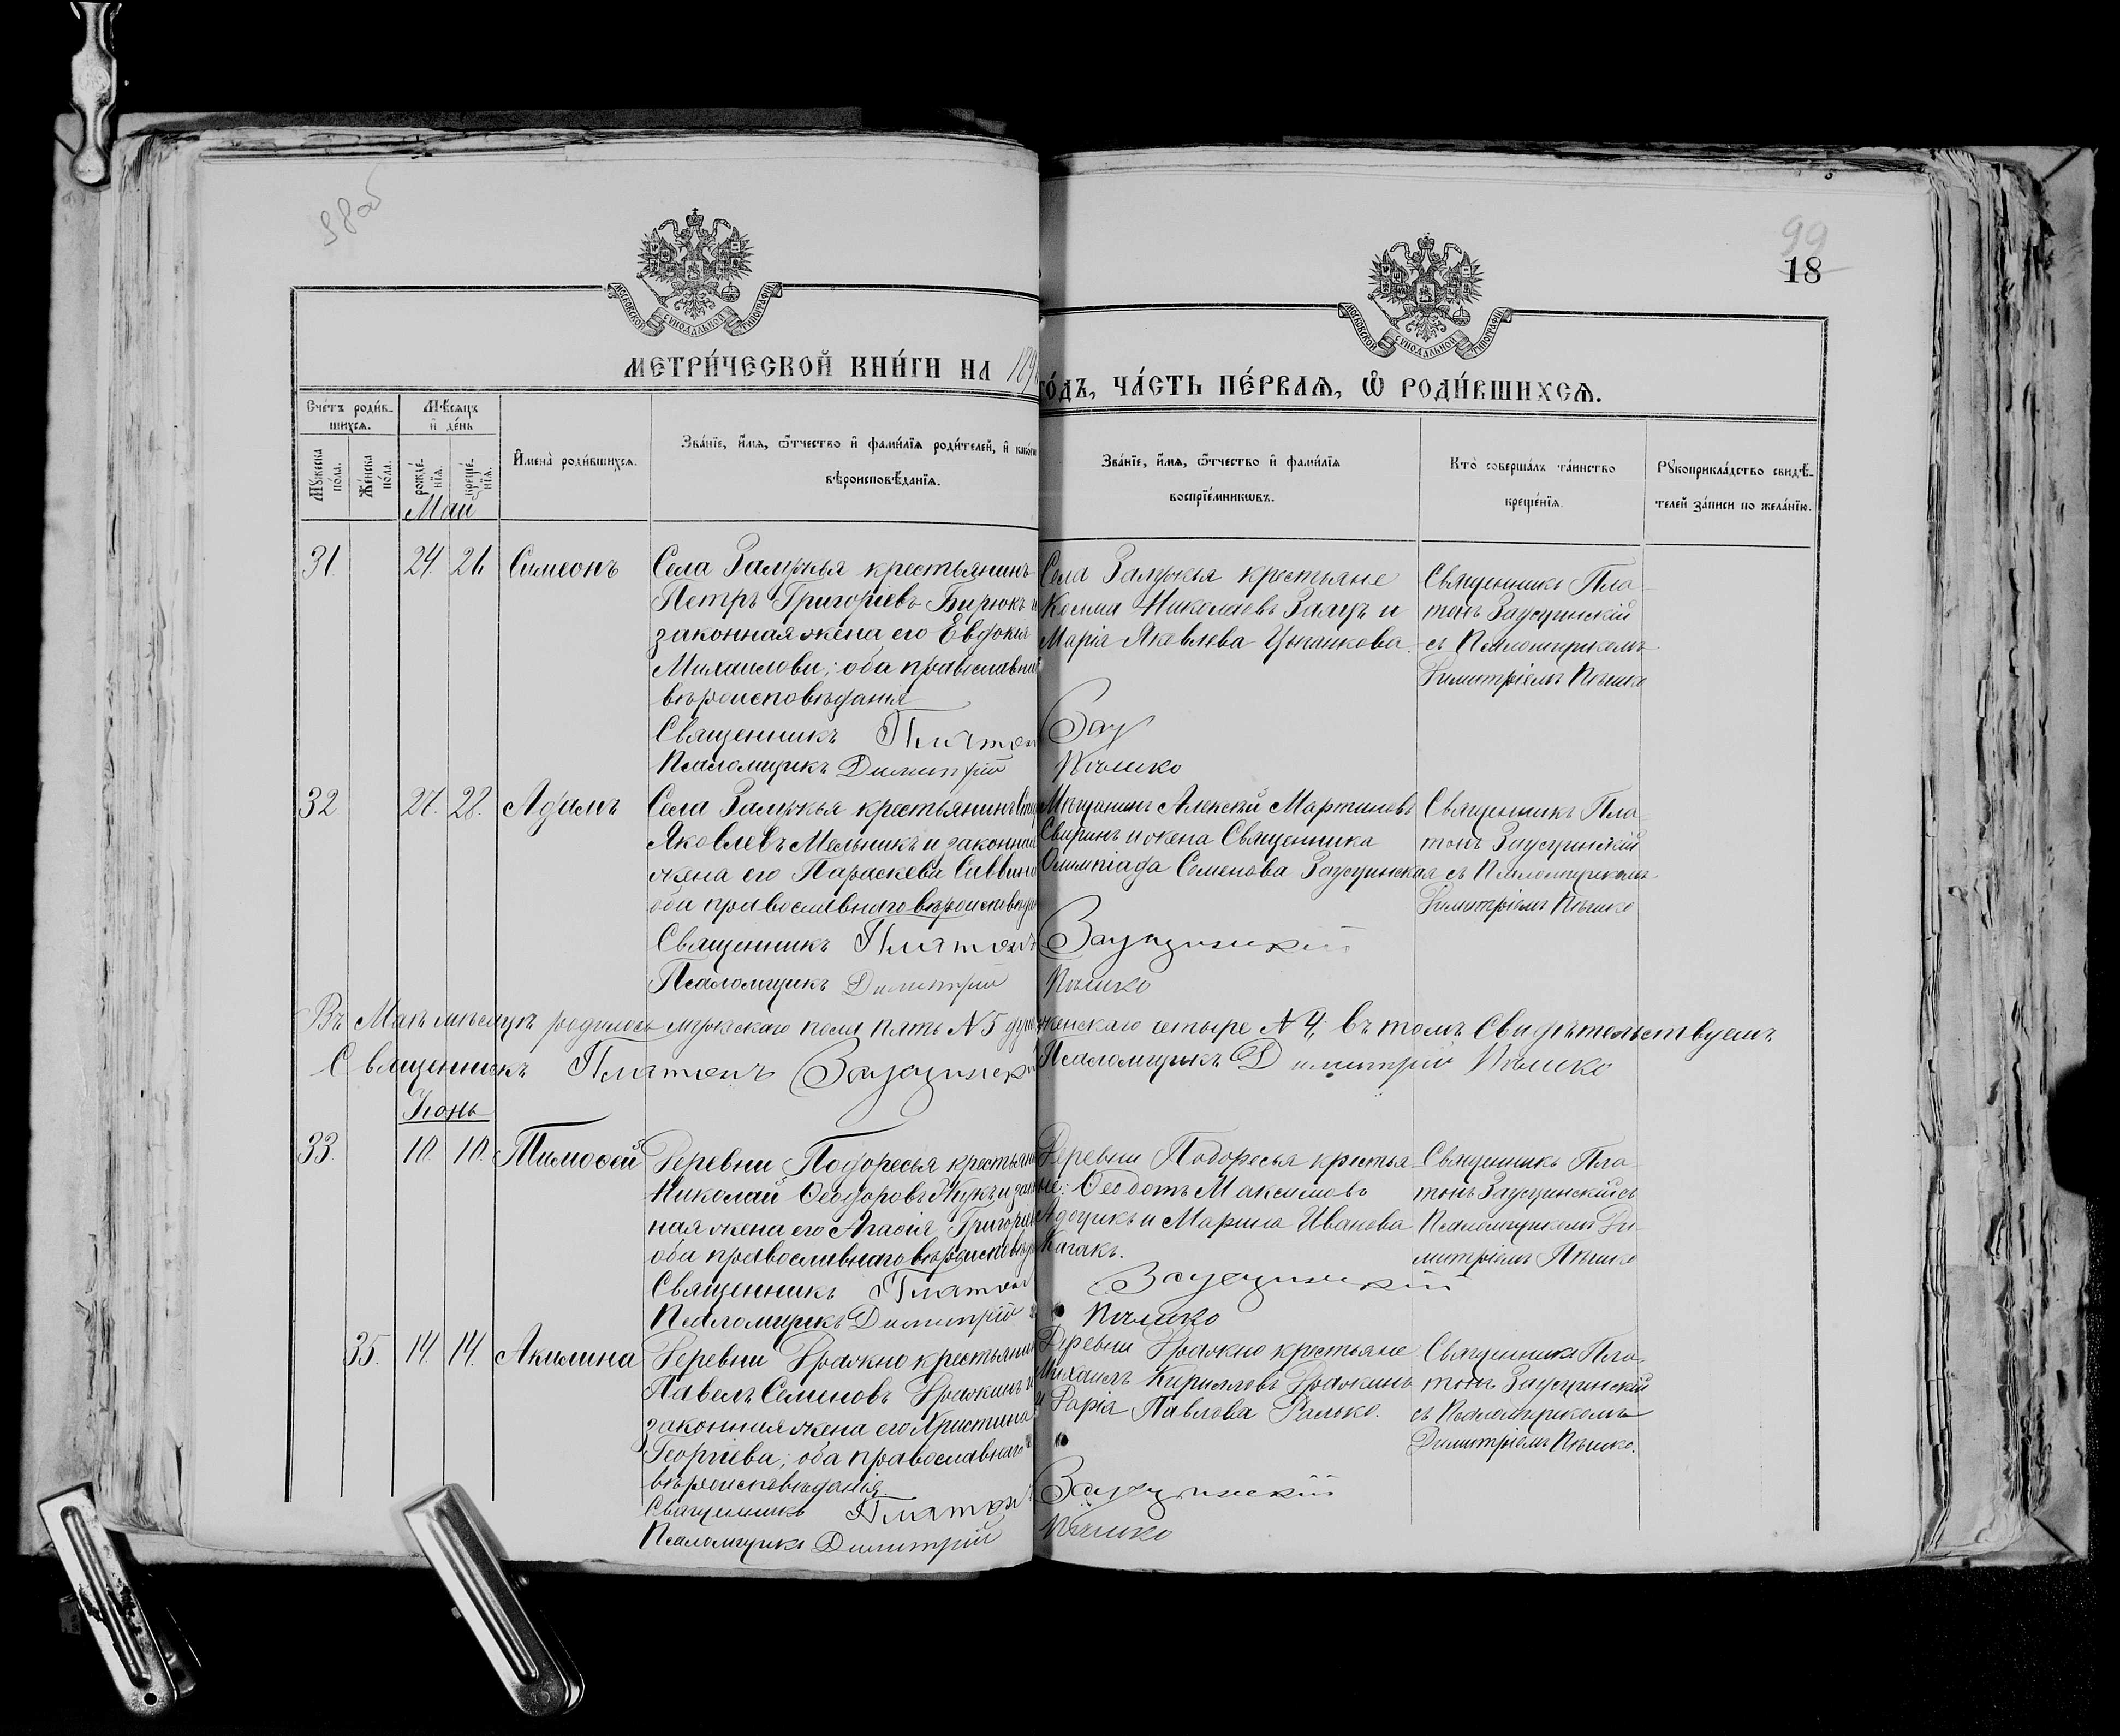 98 об
99
18
МОСКОВСКОЙ СѴНОДАЛЬНОЙ ТИПОГРАФІИ
МОСКОВСКОЙ СѴНОДАЛЬНОЙ ТИПОГРАФІИ
МЕТРИ́ЧЕСКОЙ КНИ́ГИ НА 189
ГО́ДЪ, ЧА́СТЬ ПЕ́РВАѦ, Ѡ РОДИ́ВШИХСѦ.
Сче́тъ роди́в-
шихсѧ.
Мꙋ́жеска по́ла.
Же́нска по́ла.
Мѣ́сѧцъ и де́нь
рожде́-нїѧ.
креще́-нїѧ.
И́мена̀ роди́вшихсѧ.
Зва́нїе, и́мѧ, ѻ́тчество и фами́лїѧ роди́телей, и како́гѡ
вѣроисповѣ́данїѧ.
Зва́нїе, и́мѧ, ѻ́тчество и фами́лїѧ
воспрїе́мникѡвъ.
Кто̀ соверша́лъ та́инство
креще́нїѧ.
Рꙋкоприкла́дство свидѣ́-
телей за́писи по жела́нїю.
Май
31. 24. 26 Симеонъ
Села Залужья крестьянинъ
Петръ Григорiевъ Бирюкъ и
законная жена его Евдокiя
Михаилова; оба православна
вѣроисповѣданiя
Священникъ Платон
Псаломщикъ Димитрiй
Села Залужья крестьяне
Косьма Николаевъ Заяцъ и
Марiя Яковлева Цыганкова.
Зау
Пѣшко
Священникъ Пла-
тонъ Заусцинскiй
съ Псаломщикомъ
Димитрiемъ Пѣшко
32 27. 28. Адамъ
Села Залужья крестьянинъ
Яковлевъ Мельникъ и законная
жена его Параскева Саввина
оба православнаго вѣроисповѣда
Священникъ Платонъ
Псаломщикъ Димитрiй
Мѣщанинъ Алексѣй Мартиновъ
Свиринъ и жена Священника
Олимпiада Семенова Заусцинская
Заусцинскiй
Пѣшко
Священникъ Пла-
тонъ Заусцинскiй
съ Псаломщикомъ
Димитрiемъ Пѣшко
Въ Маѣ мѣсяцѣ родилось мужскаго пола пять №5 душ женскаго четыре №4; въ томъ Свидѣтельствуемъ
Священникъ Платонъ Заусцинск Псаломщикъ Димитрiй Пѣшко
Iюнь
33. 10. 10. Тимофей
Деревни Подоресья крестьян
Николай Ѳеодоровъ Жукъ и закон
ная жена его Агафiя Григорiев
оба православнаго вѣроисповѣда
Священникъ Платон
Псаломщикъ Димитрiй
Деревни Подоресья крестья-
не: Ѳеодотъ Максимовъ
и Марина Иванова
Священникъ Пла-
тонъ Заусцинскiй съ
Псаломщикомъ Ди-
митрiемъ Пѣшко
Заусцинскiй
Пѣшко
35. 14. 14. Акилина
Деревни Дражно крестьянин
Павелъ Семеновъ Дражинъ и
законная жена его Христина
Георгiева; оба православнаго
вѣроисповѣданiя.
Священникъ Платон
Псаломщикъ Димитрiй
Деревни Дражно крестьяне
Михаилъ Кирилловъ Дражинъ
и Дарiя Павлова Ралько.
Заусцинскiй
Пѣшко
Священникъ Пла-
тонъ Заусцинскiй
съ Псаломщикомъ
Димитрiемъ Пѣшко.